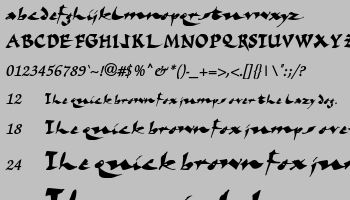 abcdefghijklmnopqrstuvwxyz
ABCDEFGHIJKLMNOPQRSTUVWXYZ
0123456789`~!@#$%^&*()-_+=>,<.[]{}|\":;/?
12 The quick brown fox jumps over the lazy dog.
18 The quick brown fox jumps ove
24 The quick brown fox jum